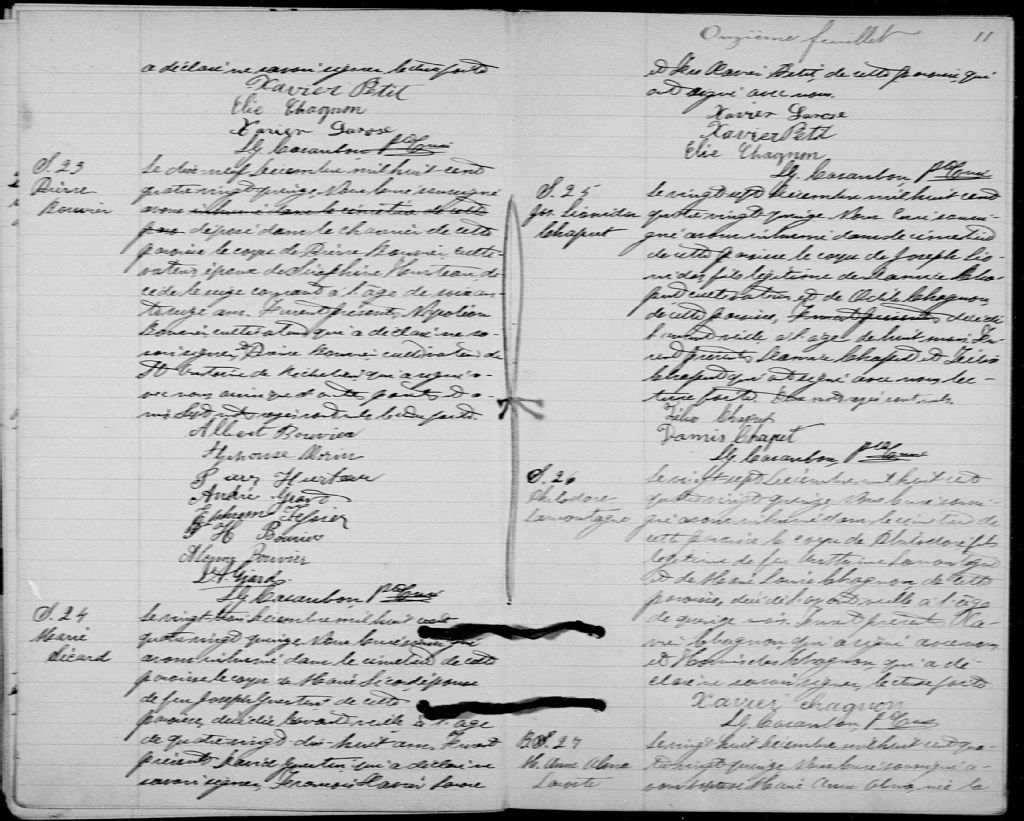 a déclaré ne savoir signer. Lecture faite
Xavier Petit
Elie Chagnon
Xavier Larose
L.G. Casaubon, Ptre Curé
S. 23
Pierre
Bouvier
Le dix-neuf Décembre mil huit cent
quatre vingt quinze, Nous Curé soussigné
avons inhumé dans le cimetière de cette
par déposé dans le charnier de cette
paroisse le corps de Pierre Bouvier, culti-
vateur, époux de Séraphine dé-
cédé le seize courant à l'âge de soixan-
te ans. Furent présents, Napoléon
Bouvier, cultivateur qui a déclaré ne sa-
voir signer, Pierre Bouvier cultivateur de
St Antoine de Richelieu, qui a signé a-
vec nous ainsi que d'autres parents et a-
mis. mots rayés sont nuls. Lecture faite.
Albert Bouvier
Alphonse Morin
Hurteau
André Giard
Ephrem Tessier
P H Bouvier
Bouvier
L A Giard
L.G. Casaubon, Ptre Curé
S. 24
Marie
Sicard
Le vingt trois Décembre mil huit cent
quatre vingt quinze, Nous Curé soussigné
avons inhumé dans le cimetière de cette
paroisse le corps de Marie Sicard épouse
de feu Joseph Guertin de cette
paroisse, décédée l'avant veille à l'âge
de quatre vingt dix-huit ans. Furent
présents Xavier Guertin, qui a déclaré ne
savoir signer, François Xavier Larose
Onzième feuillet 11
et Xavier Petit, de cette paroisse, qui
ont signé avec nous.
Xavier Larose
Xavier Petit
Elie Chagnon
L.G. Casaubon, Ptre Curé
S. 25
Jos. Léonidas
Chaput
Le vingt sept Décembre mil huit cent
quatre vingt quinze, Nous Curé soussi-
gné avons inhumé dans le cimetière
de cette paroisse le corps de Joseph Léo-
nidas, fils légitime de Damis Cha-
put cultivateur, et de Odile Chagnon,
de cette paroisse, Furent présents décédé
l'avant veille à l'âge de huit mois. Fu-
rent présents Damis Chaput et Félix
Chaput qui ont signé avec nous. Lec-
ture faite. Deux mots rayés sont nuls.
Félix Chaput
Damis Chaput
L.G. Casaubon, Ptre Curé
S. 26
Philodore
Lamontagne
Le vingt sept Décembre mil huit cent
quatre vingt quinze Nous Curé soussi-
gné avons inhumé dans le cimetière de
cette paroisse le corps de Philodore fils
légitime de feu Lamontagne
et de Marie Louise Chagnon de cette
paroisse, décédé l'avant veille à l'âge
de quinze mois. Furent présents Xa-
vier Chagnon, qui a signé avec nous
et Hormisdas Chagnon, qui a dé-
claré ne savoir signer, lecture faite
Xavier Chagnon
L.G. Casaubon, Ptre Curé
B. 27
M. Anne Alma
Lacoste
Le vingt huit Décembre mil huit cent qua-
tre vingt quinze, Nous Curé soussigné a-
vons baptisé Marie Anne Alma, née la